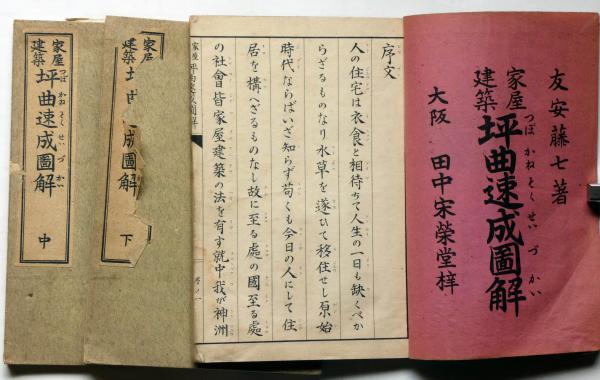 友安藤七著
家屋
建築
坪曲速成圖解
つぼかねそくせいづかい
大阪 田中宋榮堂梓
序文
人の住宅は衣食と相待ちて人生の一日も缺くべか
らざるものなり水草を遂ひて移住せし原始
時代ならばいざ知らず苟くも今日の人にして住
居を構へざるものなし故に至る處の國至る處
の社會皆家屋建築の法を有す就中我が神洲
序ノ一
家屋
建築
下
家屋
建築
坪曲速成圖解
つぼかねそくせいづかい
中